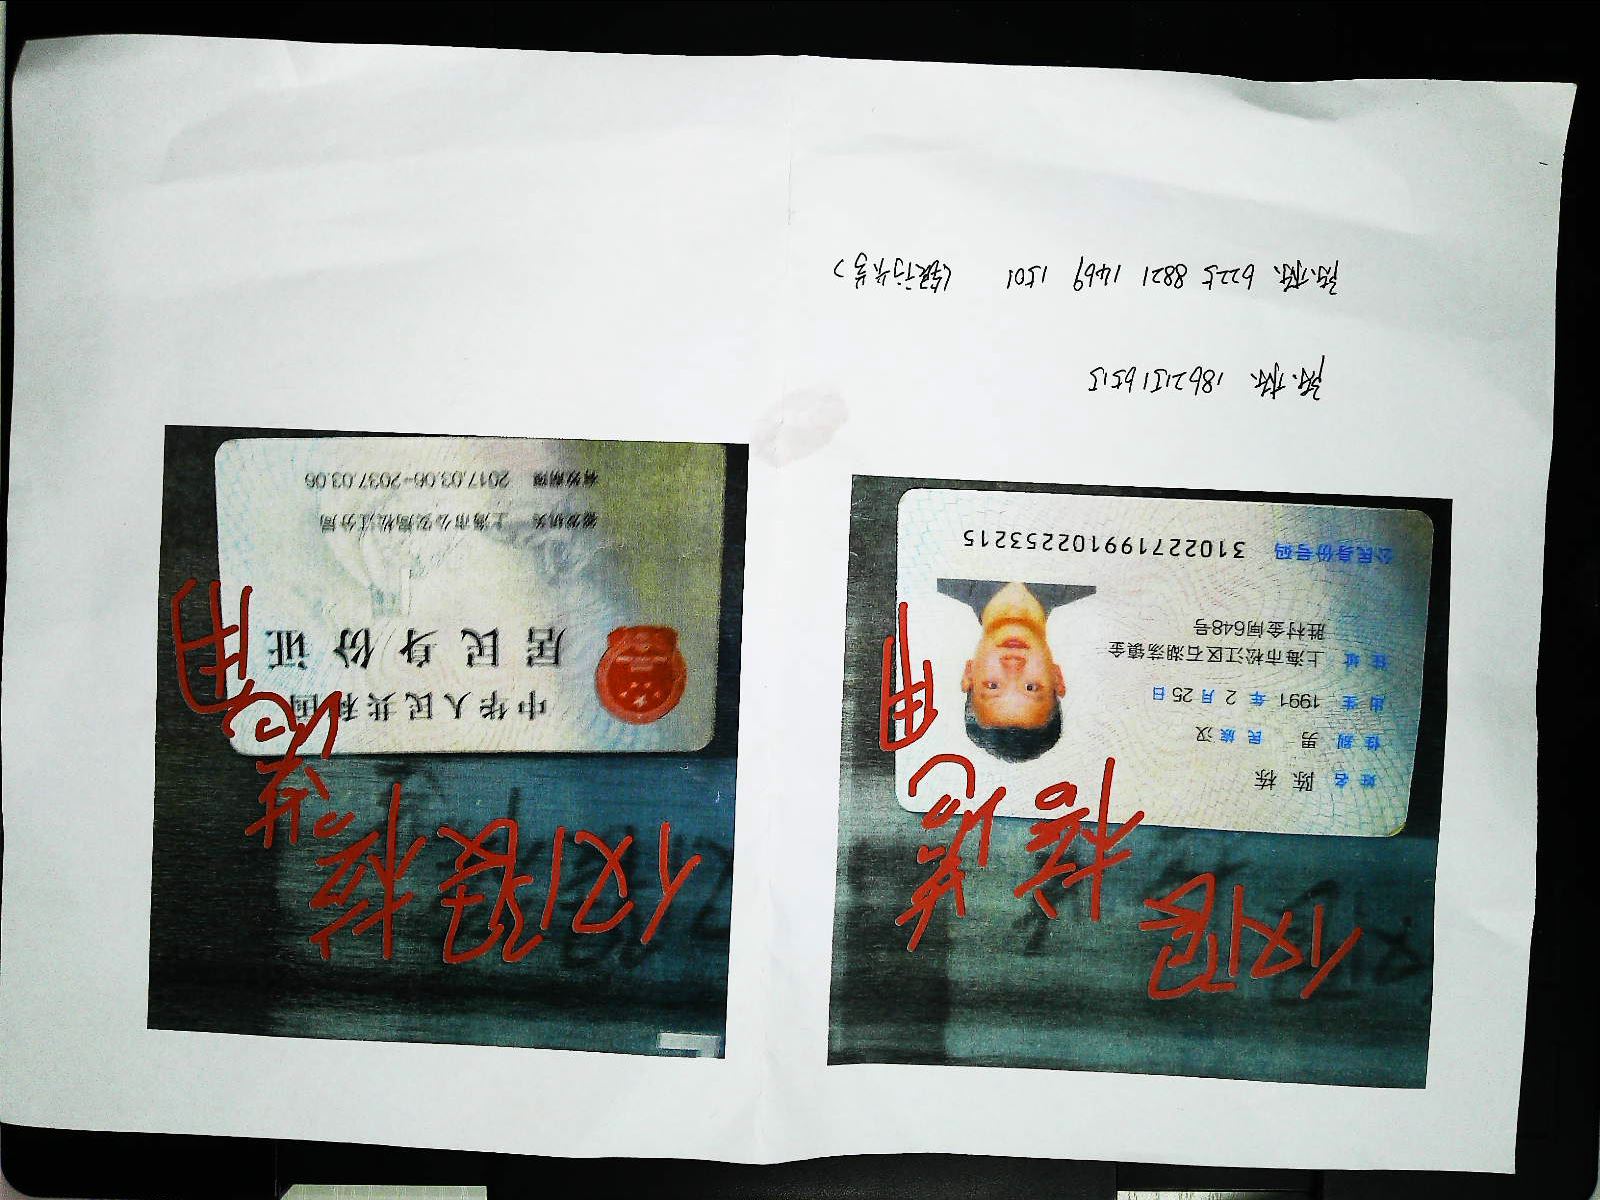 姓名 陈栋
性别 男 民族 汉
出生 1991 年 2 月 25 日
住址 上海市松江区石湖荡镇金
胜村金闸648号
公民身份号码 310227199102253215
中华人民共和国
居民身份证
签发机关 上海市公安局松江分局
有效期限 2017.03.06-2037.03.06
陈栋 18621516515
陈栋 6225 8821 1469 1501 (银行卡号)